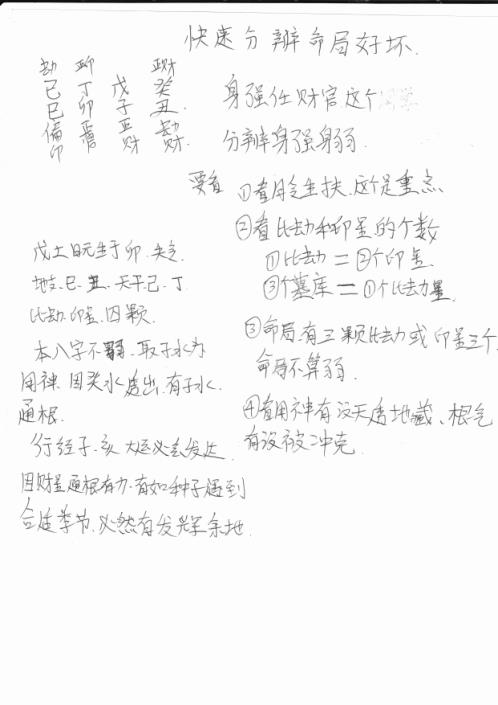 快速分辨命局好坏.
劫 印 正财
己 丁 戊 癸
巳 卯 子 丑.
偏印 正官 正财 劫财.
身强任财官这个
分辨身强身弱.
要看 ①看月令生扶.这个是重点
②看比劫和印星的个数
①比劫=②个印星.
③个墓库=①个比劫星.
③命局.有三颗比劫或印星三个.
命局不算弱.
④看用神有没天透地藏、根气
有没被冲克.
戊土日元生于卯.失令.
地支.巳.丑.天干己.丁
比劫.印星.四颗.
本八字不弱.取子水为
用神.因癸水透出.有子水.
通根.
行经子.亥大运必去发达.
因财星通根有力.有如种子遇到
合适季节.必然有发挥余地.